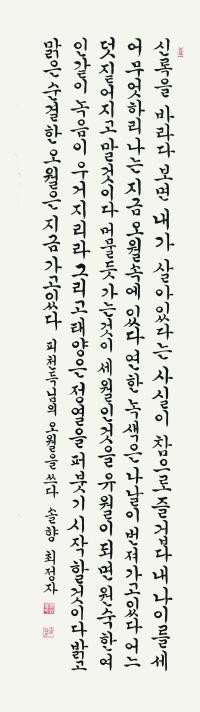 신록을 바라다 보면 내가 살아있다는 사실이 참으로 즐겁다 내 나이를 세
어 무엇하리 나는 지금 오월속에 있다 연한 녹색은 나날이 번져가고있다 어느
덧 짙어지고 말것이다 머물듯 가는것이 세월인것을 유월이 되면 원숙한 여
인같이 녹음이 우거지리라 그리고 태양은 정열을 퍼붓기 시작할것이다 밝고
맑은 순결한 오월은 지금 가고있다 피천득님의 오월을 쓰다 솔향 최정자